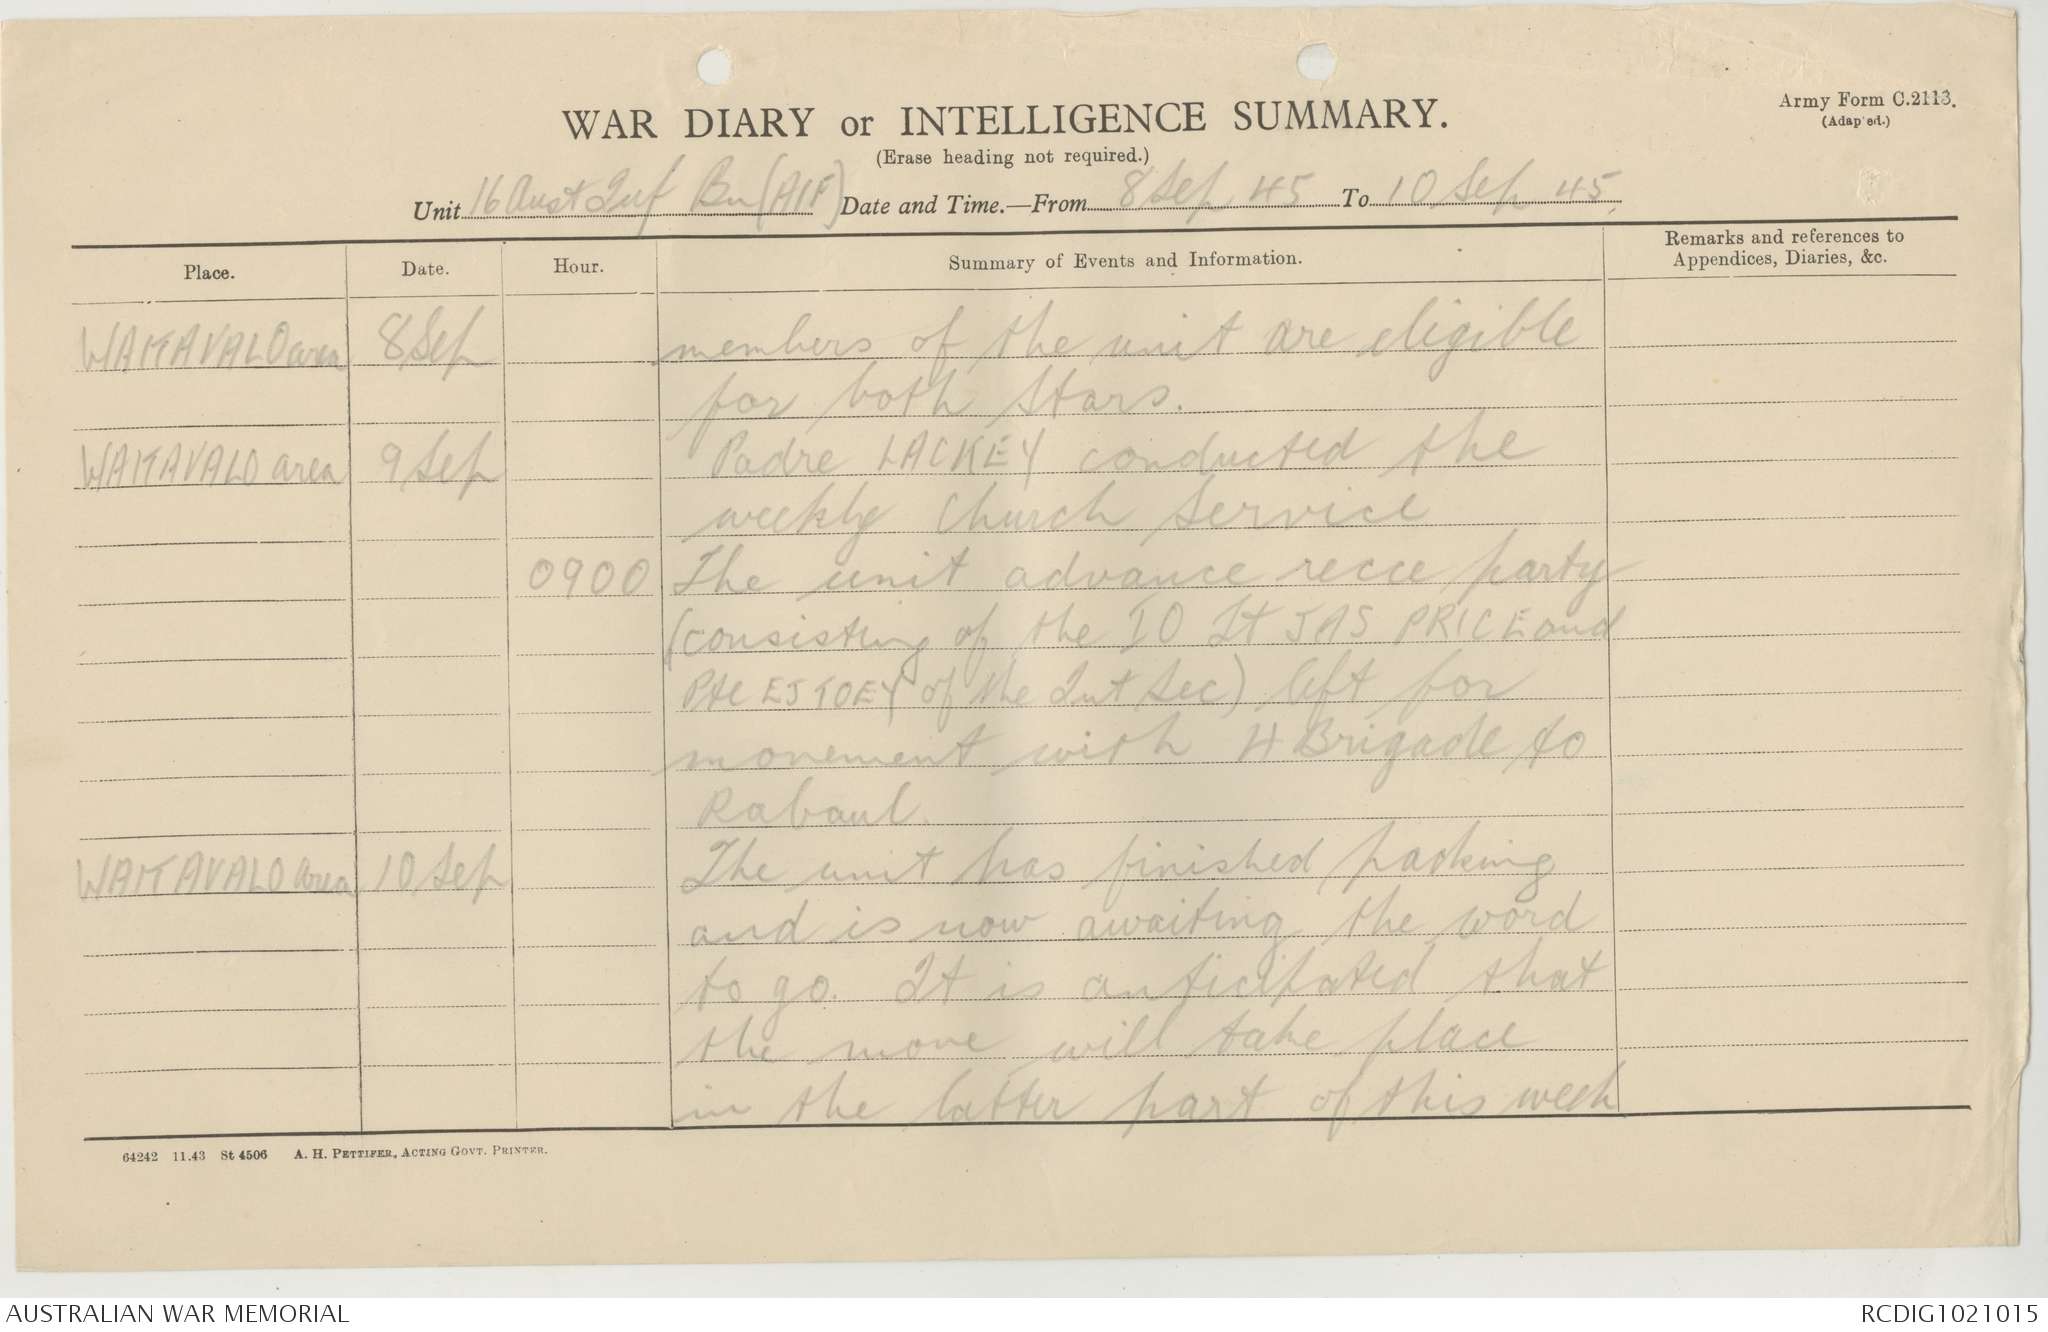 Army Form C.2113.
(Adap'ed.)
WAR DIARY or INTELLIGENCE SUMMARY.
(Erase heading not required.)
Unit 16 Aust Inf Bn (AIF) Date and Time.—From 8 Sep 45 To 10 Sep 45.
Place. Date. Hour. Summary of Events and Information. Remarks and references to
Appendices, Diaries, &c.
WAITAVALO area 8 Sep members of the unit are eligible
for both Stars.
WAITAVALO area 9 Sep Padre LACKEY conducted the
weekly Church Service
0900 The unit advance recce party
(consisting of the IO Lt JAS PRICE and
Pte EJ TOEY of the Int Sec) left for
movement with 4 Brigade to
Rabaul.
WAITAVALO area 10 Sep The unit has finished packing
and is now awaiting the word
to go. It is anticipated that
the move will take place
in the latter part of this week
64242 11.43 St 4506 A. H. Pettifer, Acting Govt. Printer.
AUSTRALIAN WAR MEMORIAL RCDIG1021015